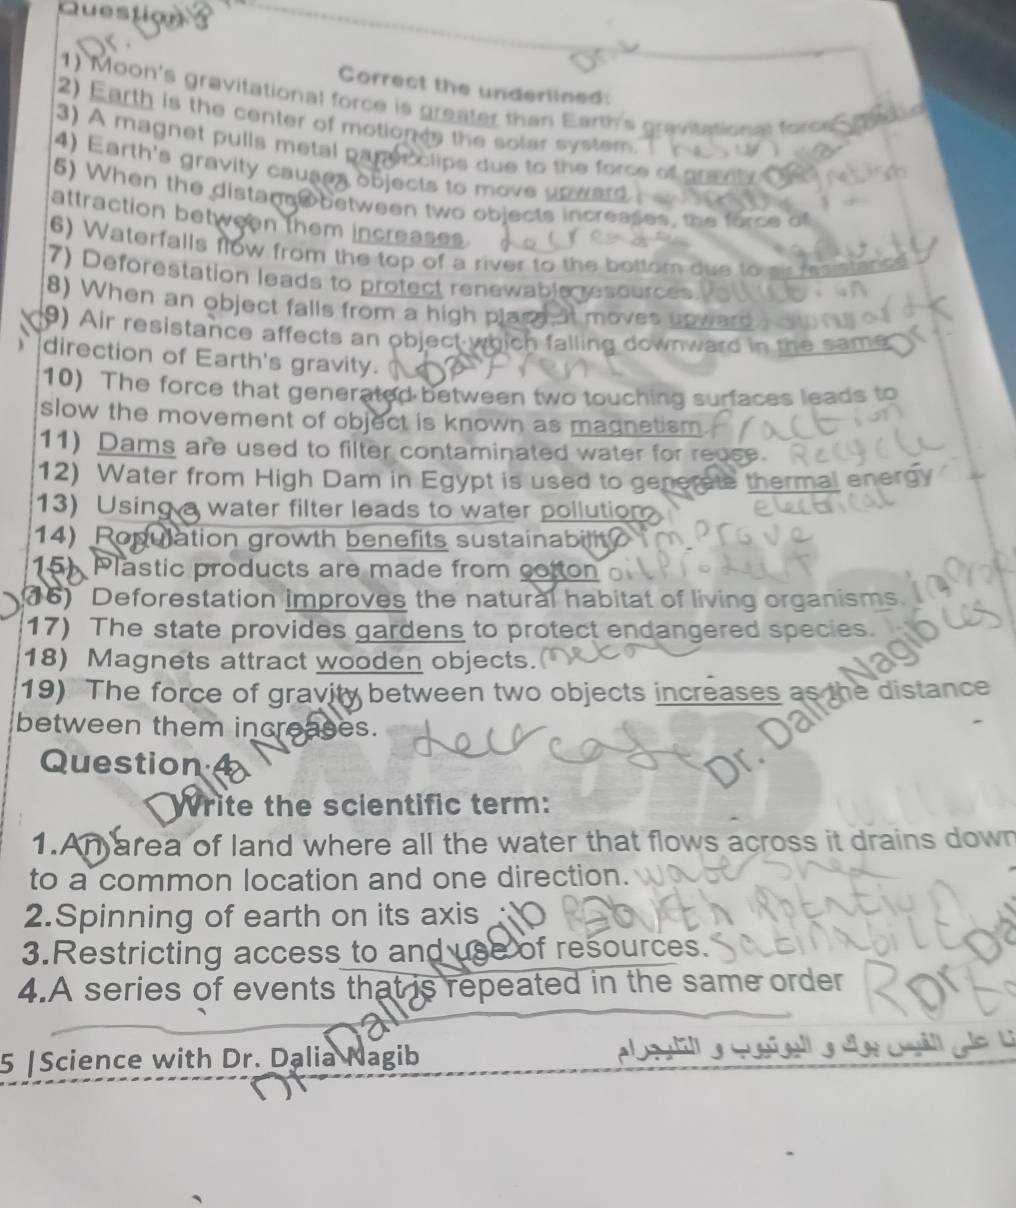 Question 3
Correct the underlined:
1) Moon's gravitational force is greater than Earth's gravitational force
2) Earth is the center of motion of the solar system. The sun
3) A magnet pulls metal paper clips due to the force of gravity
4) Earth's gravity causes objects to move upward
5) When the distance between two objects increases, the force of
attraction between them increases.
6) Waterfalls flow from the top of a river to the bottom due to air resistance
7) Deforestation leads to protect renewable resources.
8) When an object falls from a high place, it moves upward
9) Air resistance affects an object which falling downward in the same
direction of Earth's gravity.
10) The force that generated between two touching surfaces leads to
slow the movement of object is known as magnetism fraction
11) Dams are used to filter contaminated water for reuse. Recycle
12) Water from High Dam in Egypt is used to generate thermal energy
13) Using a water filter leads to water pollution electrical
14) Population growth benefits sustainability
15) Plastic products are made from cotton oil
16) Deforestation improves the natural habitat of living organisms.
17) The state provides gardens to protect endangered species.
18) Magnets attract wooden objects.
19) The force of gravity between two objects increases as the distance
between them increases.
Question 4
Write the scientific term:
1.An area of land where all the water that flows across it drains down
to a common location and one direction. water shed
2.Spinning of earth on its axis
3.Restricting access to and use of resources.
4.A series of events that is repeated in the same order
Dr. Dalia Nagib
5 |Science with Dr. Dalia Nagib
نا على الفيس بوك و اليوتيوب و التليجرام